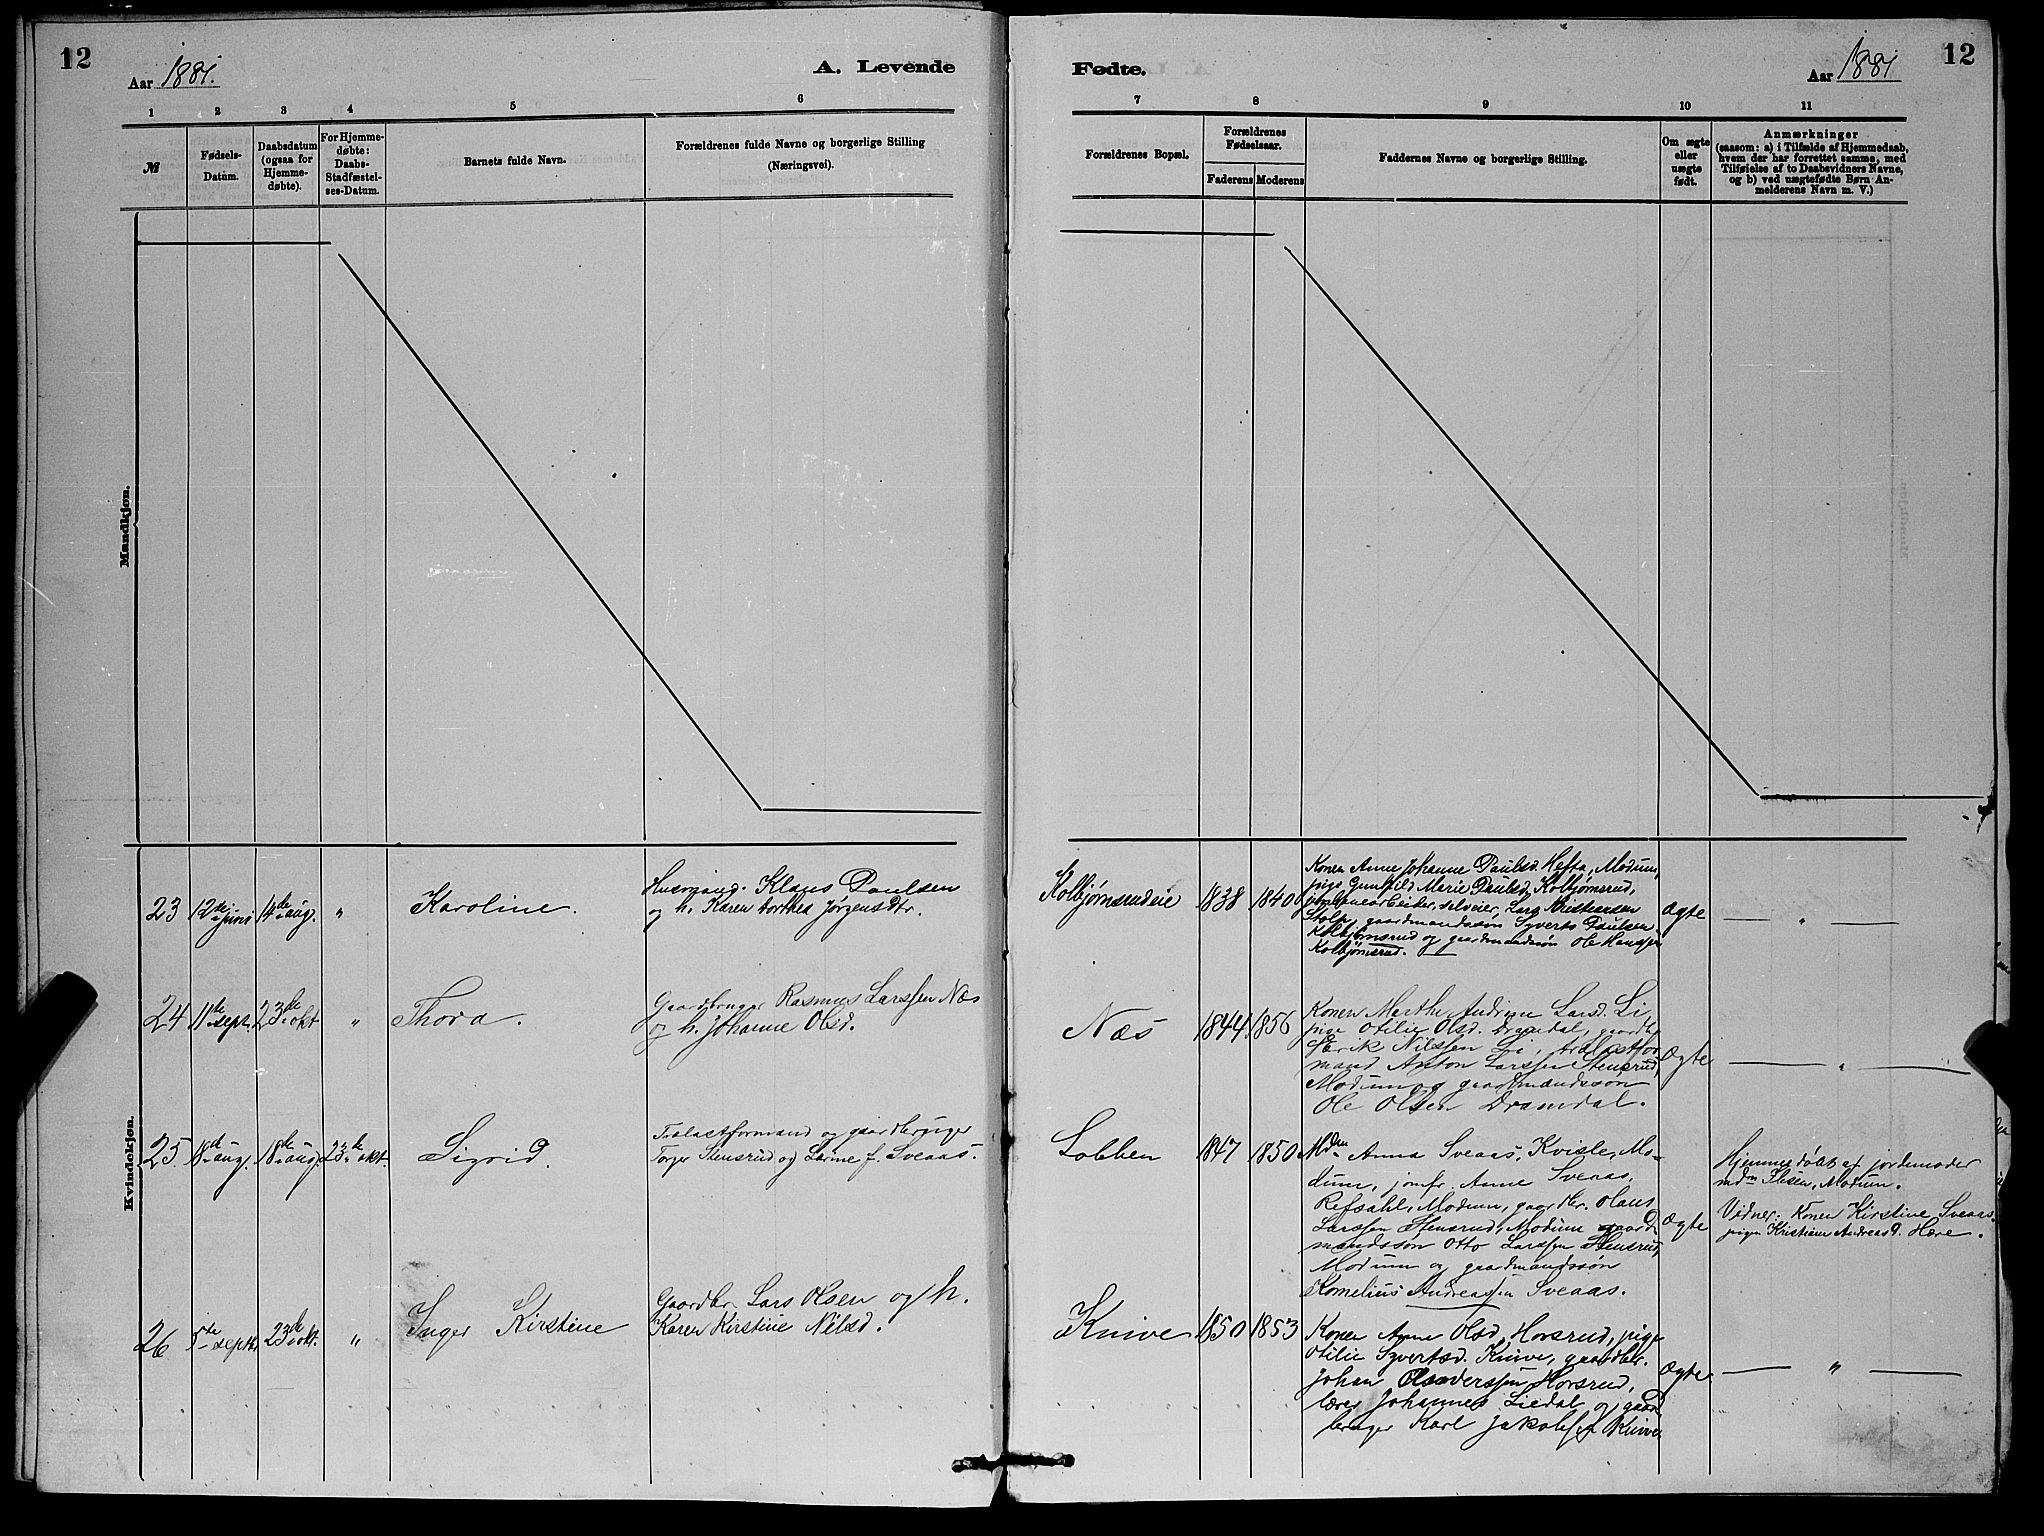 12
Aar 1881.
A. Levende
1 2 3 4 5 6
№
Fødsels-
Datum.
Daabsdatum
(ogsaa for
Hjemme-
døbte).
For Hjemme-
døbte:
Daabs-
Stadfæstel-
ses-Datum.
Barnets fulde Navn.
Forældrenes fulde Navne og borgerlige Stilling
(Næringsvei).
Mandkjøn.
Kvindekjøn.
23 12te juni 14de aug. " Karoline.
Husmand Klaus Paulsen
og h. Karen Dorthea Jørgensdtr.
24 11te sept. 23de okt " Thora.
Gaardbruger Rasmus Larssen Næs
og h. Johanne Olsd.
25 18de aug. 18de aug. 23de okt. Sigrid.
Trælastformand og gaardbruger
Torger Stensrud og Larine f. Sveaas.
26 5te septbr. 23de okt. " Inger Kirstine
Gaardbr. Lars Olsen og h.
Karen Kirstine Nilsd.
Fødte.
Aar 1881
12
7 8 9 10 11
Forældrenes Bopæl.
Forældrenes
Fødselsaar.
Faderens Moderens
Faddernes Navne og borgerlige Stilling.
Om ægte
eller
uægte
født.
Anmærkninger
(saasom: a) i Tilfælde af Hjemmedaab,
hvem der har forrettet samme, med
Tilføielse af to Daabsvidners Navne,
og b) ved uægtefødte Børn An-
melderens Navn m. V.)
Kolbjørnsrudeie 1838 1840
Konen Anne Johanne Paulsd. Hefta, Modum,
pige Gunhild Marie Paulsd. Kolbjørnsrud,
jernbanearbeider, selveier, Lars Kristiansen
gaardmandssøn Syvert Paulsen
Kolbjørnsrud og gaardmandssøn Ole Hanssen
Kolbjørnsrud.
ægte — " —
Næs 1844 1856
Konen Marthe Andrine Larsd. Li,
pige Otilie Olsd. Dramdal, gaardbr.
Erik Nilssen Li, trælastfor-
mand Anton Larssen Stensrud,
Modum og gaardmandssøn
Ole Olsen Dramdal.
ægte — " —
Lobben 1847 1850
Mdm Anna Sveaas, Kvisle, Mo-
dum, jomfr. Anne Sveaas,
Refsahl, Modum, gaardbr. Olaus
Larssen Stensrud, Modum gaard-
mandssøn Otto Larssen Stensrud,
Modum og gaardmandssøn
Kornelius Andreassen Sveaas.
ægte
Hjemmedøbt af jordemoder
mdm Ihlen, Modum.
Vidner: Konen Kirstine Sveaas.
pigen Kristiane Andreasd. Hære.
Knive 1850 1853
Konen Anne Olsd. Horsrud, pige
Otilie Syvertsd. Knive, gaardbr.
Johan Anderssen Horsrud,
lærer Johannes Liedal og gaard-
bruger Karl Jakobsen Knive
ægte — " —